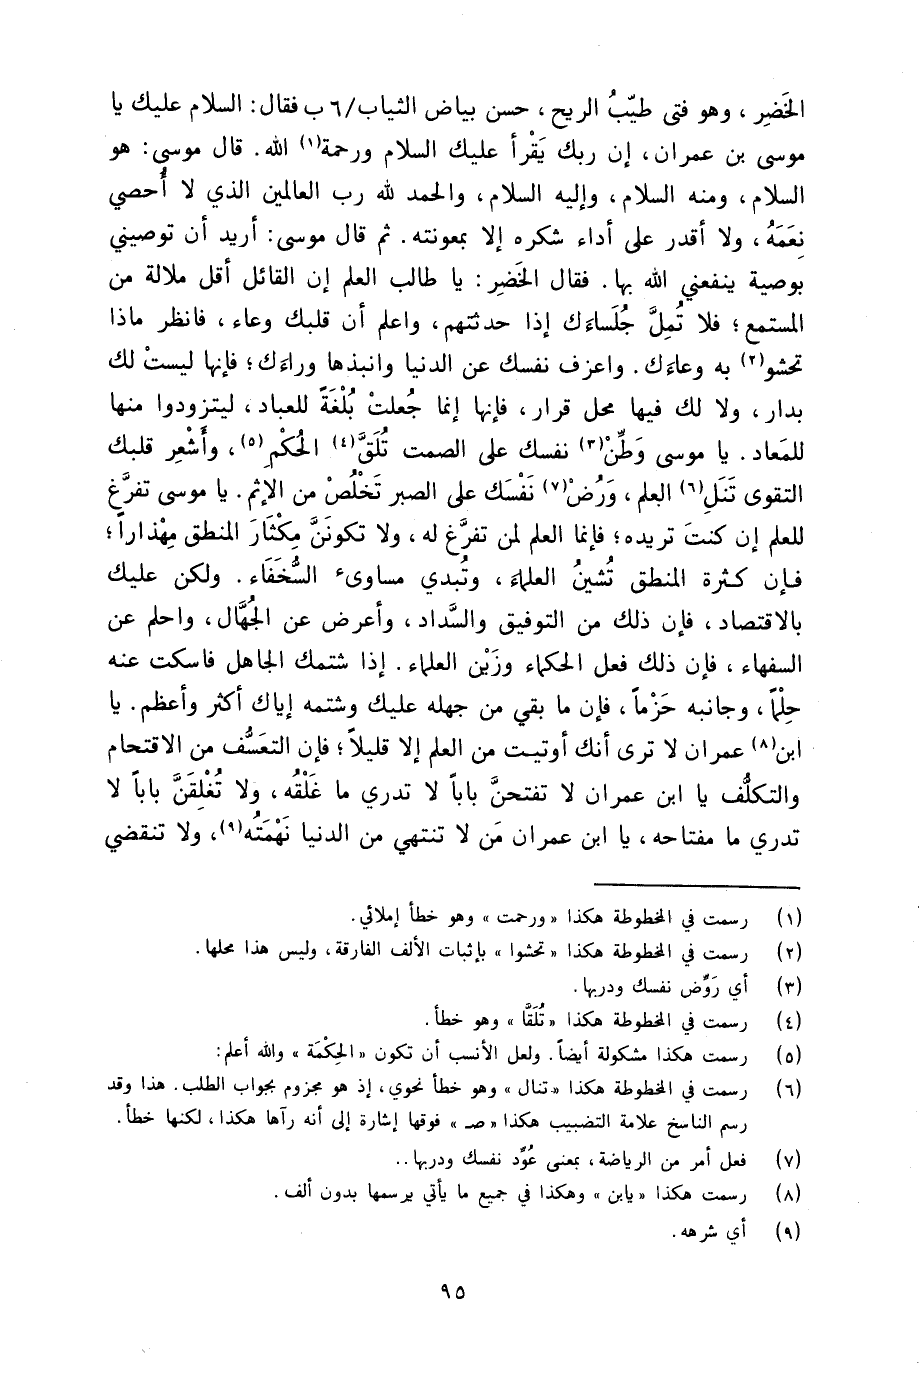 الخَضِر ، وهو فتى طيّبُ الريح ، حسن بياض الثياب/٦ ب فقال: السلام عليك يا
موسى بن عمران، إن ربك يَقْرأ عليك السلام ورحمة(١) الله. قال موسى: هو
السلام، ومنه السلام، وإليه السلام، والحمد لله رب العالمين الذي لا أُحصي
نِعَمَهُ ، ولا أقدر على أداء شكره إلا بمعونته. ثم قال موسى: أريد أن توصيني
بوصية ينفعني الله بها. فقال الخَضِر : يا طالب العلم إن القائل أقل ملالة من
المستمع؛ فلا تُمِلَّ جُلَساءَك إذا حدثتهم، واعلم أن قلبك وعاء، فانظر ماذا
تحشو(٢) به وعاءَك. واعزف نفسك عن الدنيا وانبذها وراءَك؛ فإنها ليستْ لك
بدار، ولا لك فيها محل قرار، فإنها إنما جُعلتْ بُلْغَةً للعباد، ليتزودوا منها
للمَعاد. يا موسى وَطِّنْ(٣) نفسك على الصمت تُلَقَّ(٤) الحُكْم(٥)، وأَشْعِر قلبك
التقوى تَنَلِ(٦) العلم، وَرُضْ(٧) نَفْسَك على الصبر تَخْلُصْ من الإثم. يا موسى تفرَّغ
للعلم إن كنتَ تريده؛ فإنما العلم لمن تفرَّغ له، ولا تكونَنَّ مِكْثَارَ المنطق مِهْذاراً؛
فإن كثرة المنطق تُشينُ العلماءَ، وتُبدي مساوىء السُّخَفَاء. ولكن عليك
بالاقتصاد، فإن ذلك من التوفيق والسَّداد، وأعرض عن الجُهَّال، واحلم عن
السفهاء، فإن ذلك فعل الحكماء وزَيْن العلماء. إذا شتمك الجاهل فاسكت عنه
حِلْماً، وجانبه حَزْماً، فإن ما بقي من جهله عليك وشتمه إياك أكثر وأعظم. يا
ابن(٨) عمران لا ترى أنك أوتيت من العلم إلا قليلاً؛ فإن التعَسُّف من الاقتحام
والتكلُّف يا ابن عمران لا تفتحنَّ باباً لا تدري ما غَلْقُه، ولا تُغْلِقَنَّ باباً لا
تدري ما مفتاحه، يا ابن عمران مَن لا تنتهي من الدنيا نَهْمَتُه(٩)، ولا تنقضي
(١) رسمت في المخطوطة هكذا «ورحمت» وهو خطأ إملائي.
(٢) رسمت في المخطوطة هكذا «تحشوا» بإثبات الألف الفارقة، وليس هذا محلها.
(٣) أي رَوِّض نفسك ودربها.
(٤) رسمت في المخطوطة هكذا «تُلَقَّا» وهو خطأ.
(٥) رسمت هكذا مشكولة أيضاً. ولعل الأنسب أن تكون «الحِكْمَة» والله أعلم:
(٦) رسمت في المخطوطة هكذا «تنال» وهو خطأ نحوي، إذ هو مجزوم بجواب الطلب. هذا وقد
رسم الناسخ علامة التضبيب هكذا «صـ» فوقها إشارة إلى أنه رآها هكذا، لكنها خطأ.
(٧) فعل أمر من الرياضة، بمعنى عُوِّد نفسك ودربها..
(٨) رسمت هكذا «يابن» وهكذا في جميع ما يأتي يرسمها بدون ألف.
(٩) أي شرهه.
٩٥